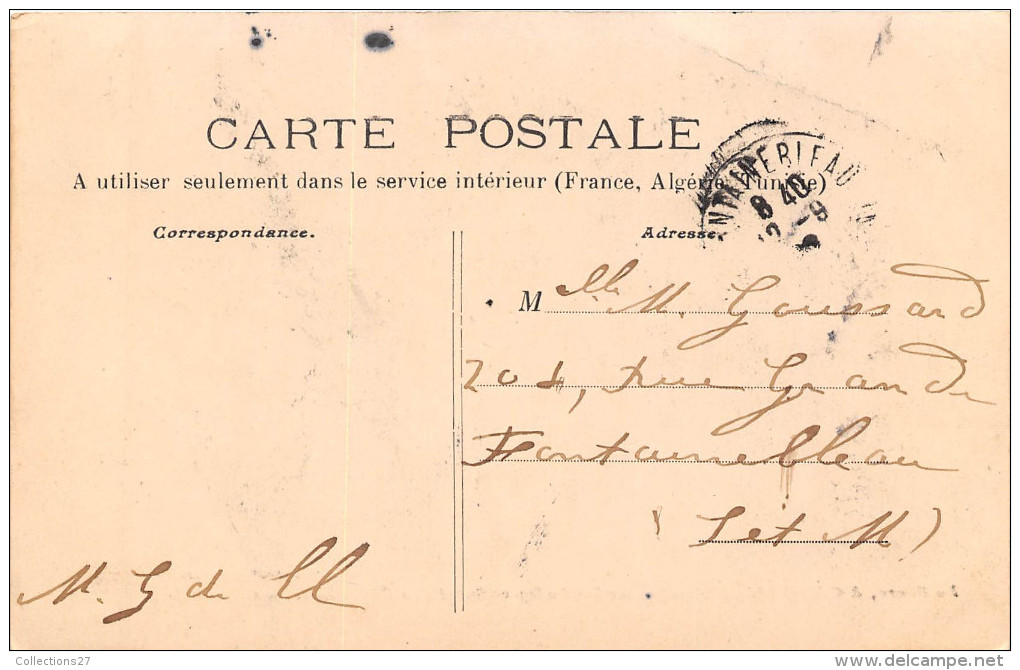 CARTE POSTALE
A utiliser seulement dans le service intérieur (France, Algérie, Tunisie)
Correspondance.
Adresse.
FONTAINEBLEAU
8 40
Mlle M. Goussard
204, rue Grande
Fontainebleau
(S et M)
M. G de
Collections27
delcampe.net